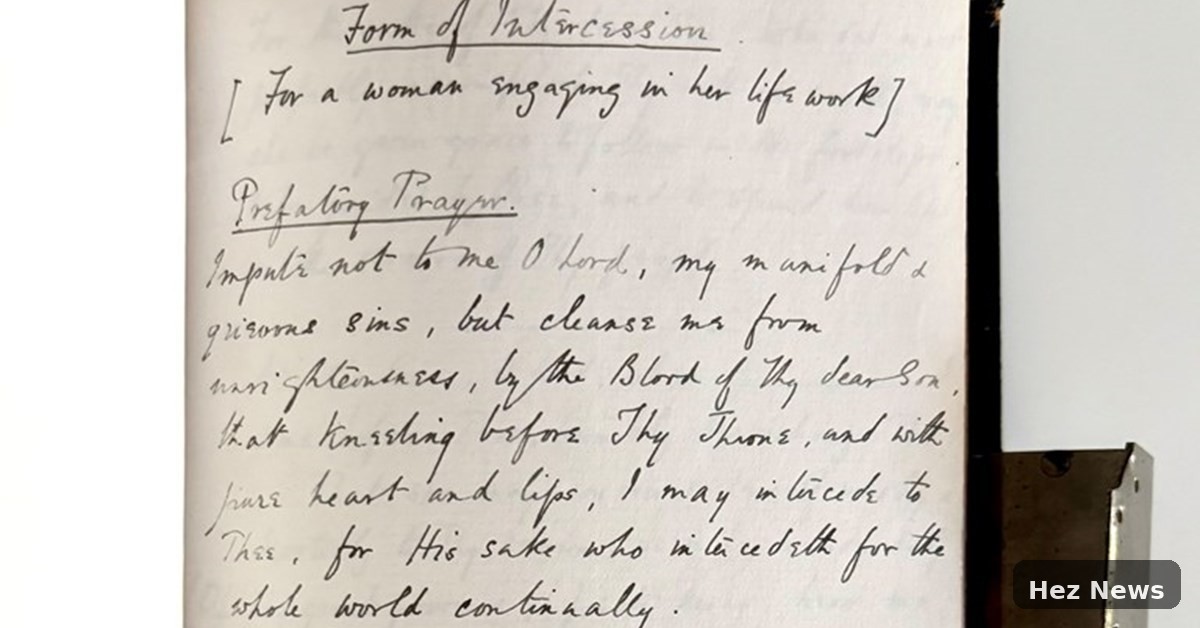 Form of Intercession.
[For a woman engaging in her life work]
Prefatory Prayer.
Impute not to me O Lord, my manifold &
grievous sins, but cleanse me from
unrighteousness, by the Blood of Thy dear Son,
that kneeling before Thy Throne, and with
pure heart and lips, I may intercede to
Thee, for His sake who intercedeth for the
whole world continually.
Hez News